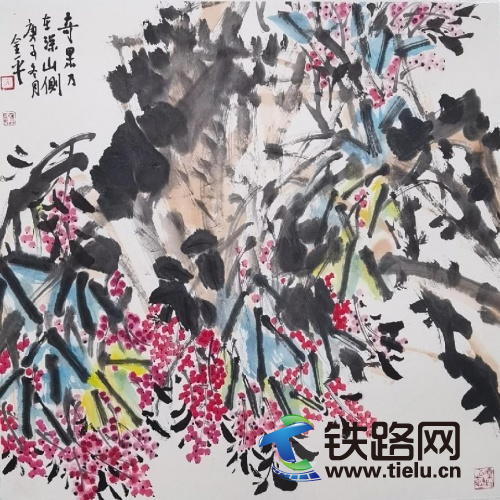 奇果乃
在深山侧
庚子冬月
金平
铁路网
www.tielu.cn